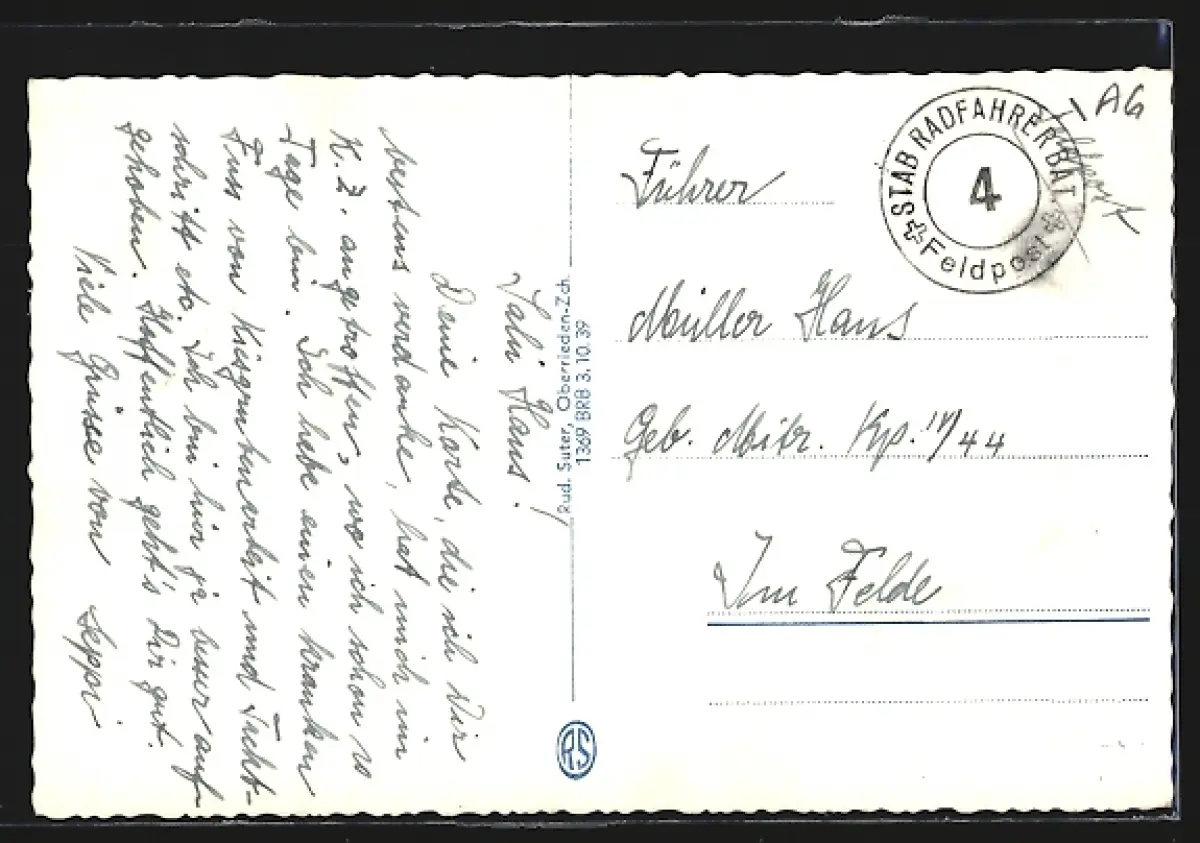 Salü Hans!
Deine Karte, die ich Dir
bestens verdanke, hat mich im
K.Z. angetroffen, wo ich schon 10
Tage bin. Ich habe einen kranken
Fuss von Kiesgrubenarbeit und Takt-
schritt etc. Ich bin hier ja besser auf-
gehoben. Hoffentlich geht's Dir gut.
Viele Grüsse von Seppi
Rud. Suter, Oberrieden-Zch.
1369 BRB 3.10.39
RS
STAB RADFAHRER BAT.
4
Feldpost
AG
Führer
Müller Hans
Geb. Mitr. Kp. IV/44
Im Felde